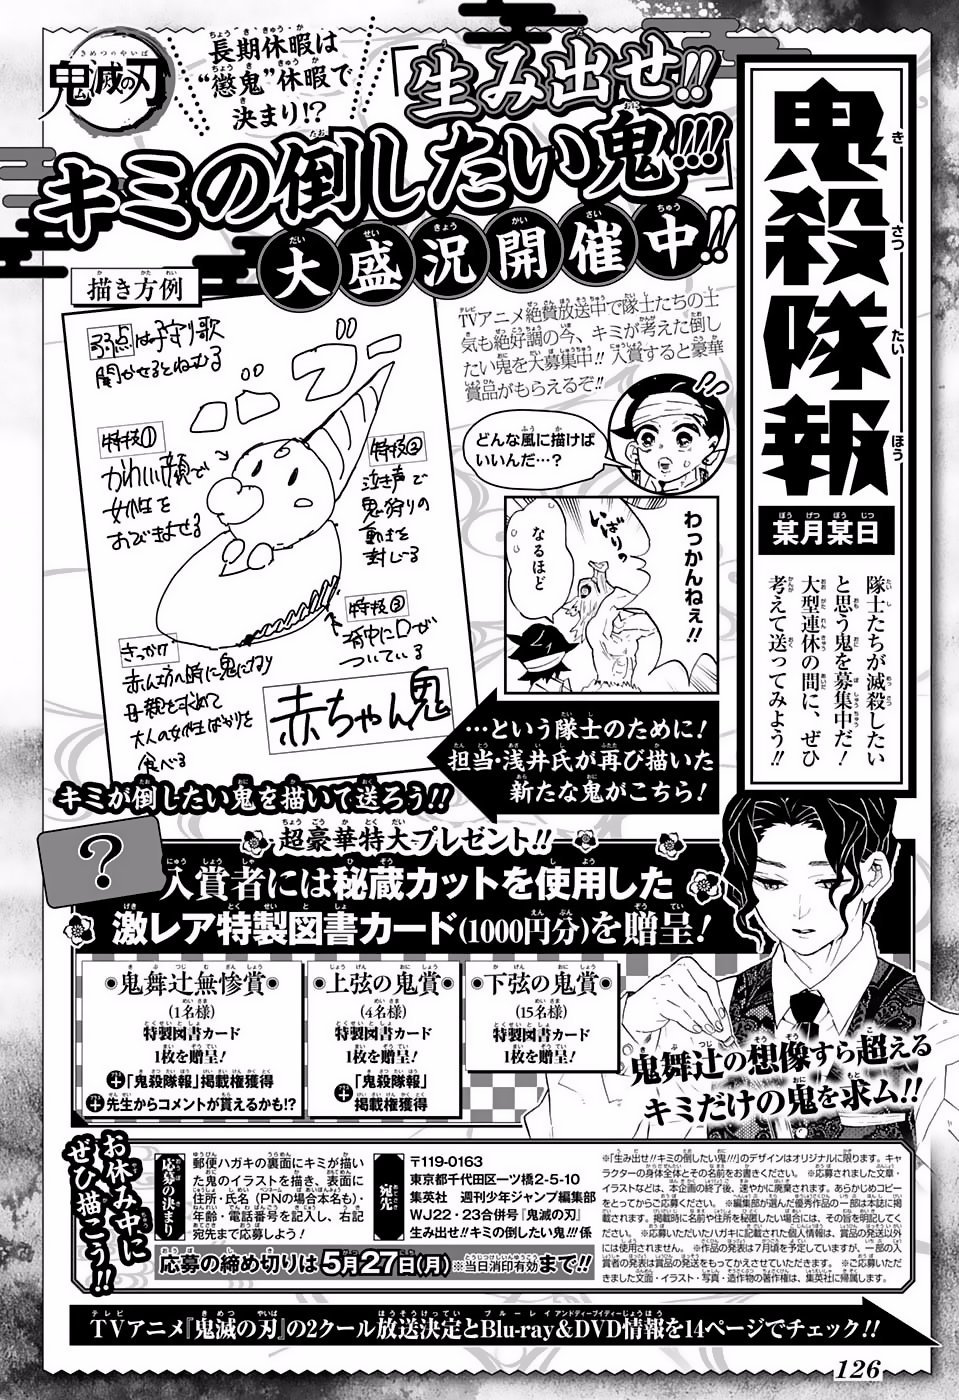 鬼滅の刃
長期休暇は
“懲鬼”休暇で
決まり!?
「生み出せ!!
キミの倒したい鬼!!!」
大盛況開催中!!
鬼殺隊報
某月某日
隊士たちが滅殺したい
と思う鬼を募集中だ!
大型連休の間に、ぜひ
考えて送ってみよう!!
TVアニメ絶賛放送中で隊士たちの士
気も絶好調の今、キミが考えた倒し
たい鬼を大募集中!! 入賞すると豪華
賞品がもらえるぞ!!
どんな風に描けば
いいんだ…?
わっかんねぇ!!
いばりの
なるほど
描き方例
弱点は子守り歌
聞かせるとねむる
特技①
かわいい顔で
女性を
おびきよせる
特技②
泣き声で
鬼狩りの
動きを
封じる
特技③
背中に口が
ついている
きっかけ
赤ん坊の時に鬼になり
母親を求めて
大人の女性ばかりを
食べる
赤ちゃん鬼
…という隊士のために!
担当・浅井氏が再び描いた
新たな鬼がこちら!
キミが倒したい鬼を描いて送ろう!!
超豪華特大プレゼント!!
?
入賞者には秘蔵カットを使用した
激レア特製図書カード(1000円分)を贈呈!
鬼舞辻無惨賞
(1名様)
特製図書カード
1枚を贈呈!
+「鬼殺隊報」掲載権獲得
+先生からコメントが貰えるかも!?
上弦の鬼賞
(4名様)
特製図書カード
1枚を贈呈!
+「鬼殺隊報」
掲載権獲得
下弦の鬼賞
(15名様)
特製図書カード
1枚を贈呈!
鬼舞辻の想像すら超える
キミだけの鬼を求ム!!
お休み中に
ぜひ描こう!!
応募の決まり
郵便ハガキの裏面にキミが描い
た鬼のイラストを描き、表面に
住所・氏名(PNの場合本名も)・
年齢・電話番号を記入し、右記
宛先まで応募しよう!
宛先
〒119-0163
東京都千代田区一ツ橋2-5-10
集英社 週刊少年ジャンプ編集部
WJ22・23合併号『鬼滅の刃』
生み出せ!!キミの倒したい鬼!!!係
応募の締め切りは5月27日(月)※当日消印有効まで!!
※「生み出せ!!キミの倒したい鬼!!!」のデザインはオリジナルに限ります。キャ
ラクターの身体全体とその名前をお書きください。 ※応募されました文章・
イラストなどは、本企画の終了後、速やかに廃棄されます。あらかじめコピー
をとってからご応募ください。 ※編集部が選んだ優秀作品の一部は本誌に掲
載されます。掲載時に名前や住所を秘匿したい場合には、その旨を明記してく
ださい。 ※応募いただいたハガキに記載された個人情報は、賞品の発送以外
には使用されません。 ※作品の発表は7月頃を予定していますが、一部の入
賞者の発表は賞品の発送をもってかえさせていただきます。 ※ご応募いただ
きました文面・イラスト・写真・造作物の著作権は、集英社に帰属します。
TVアニメ『鬼滅の刃』の2クール放送決定とBlu-ray&DVD情報を14ページでチェック!!
126